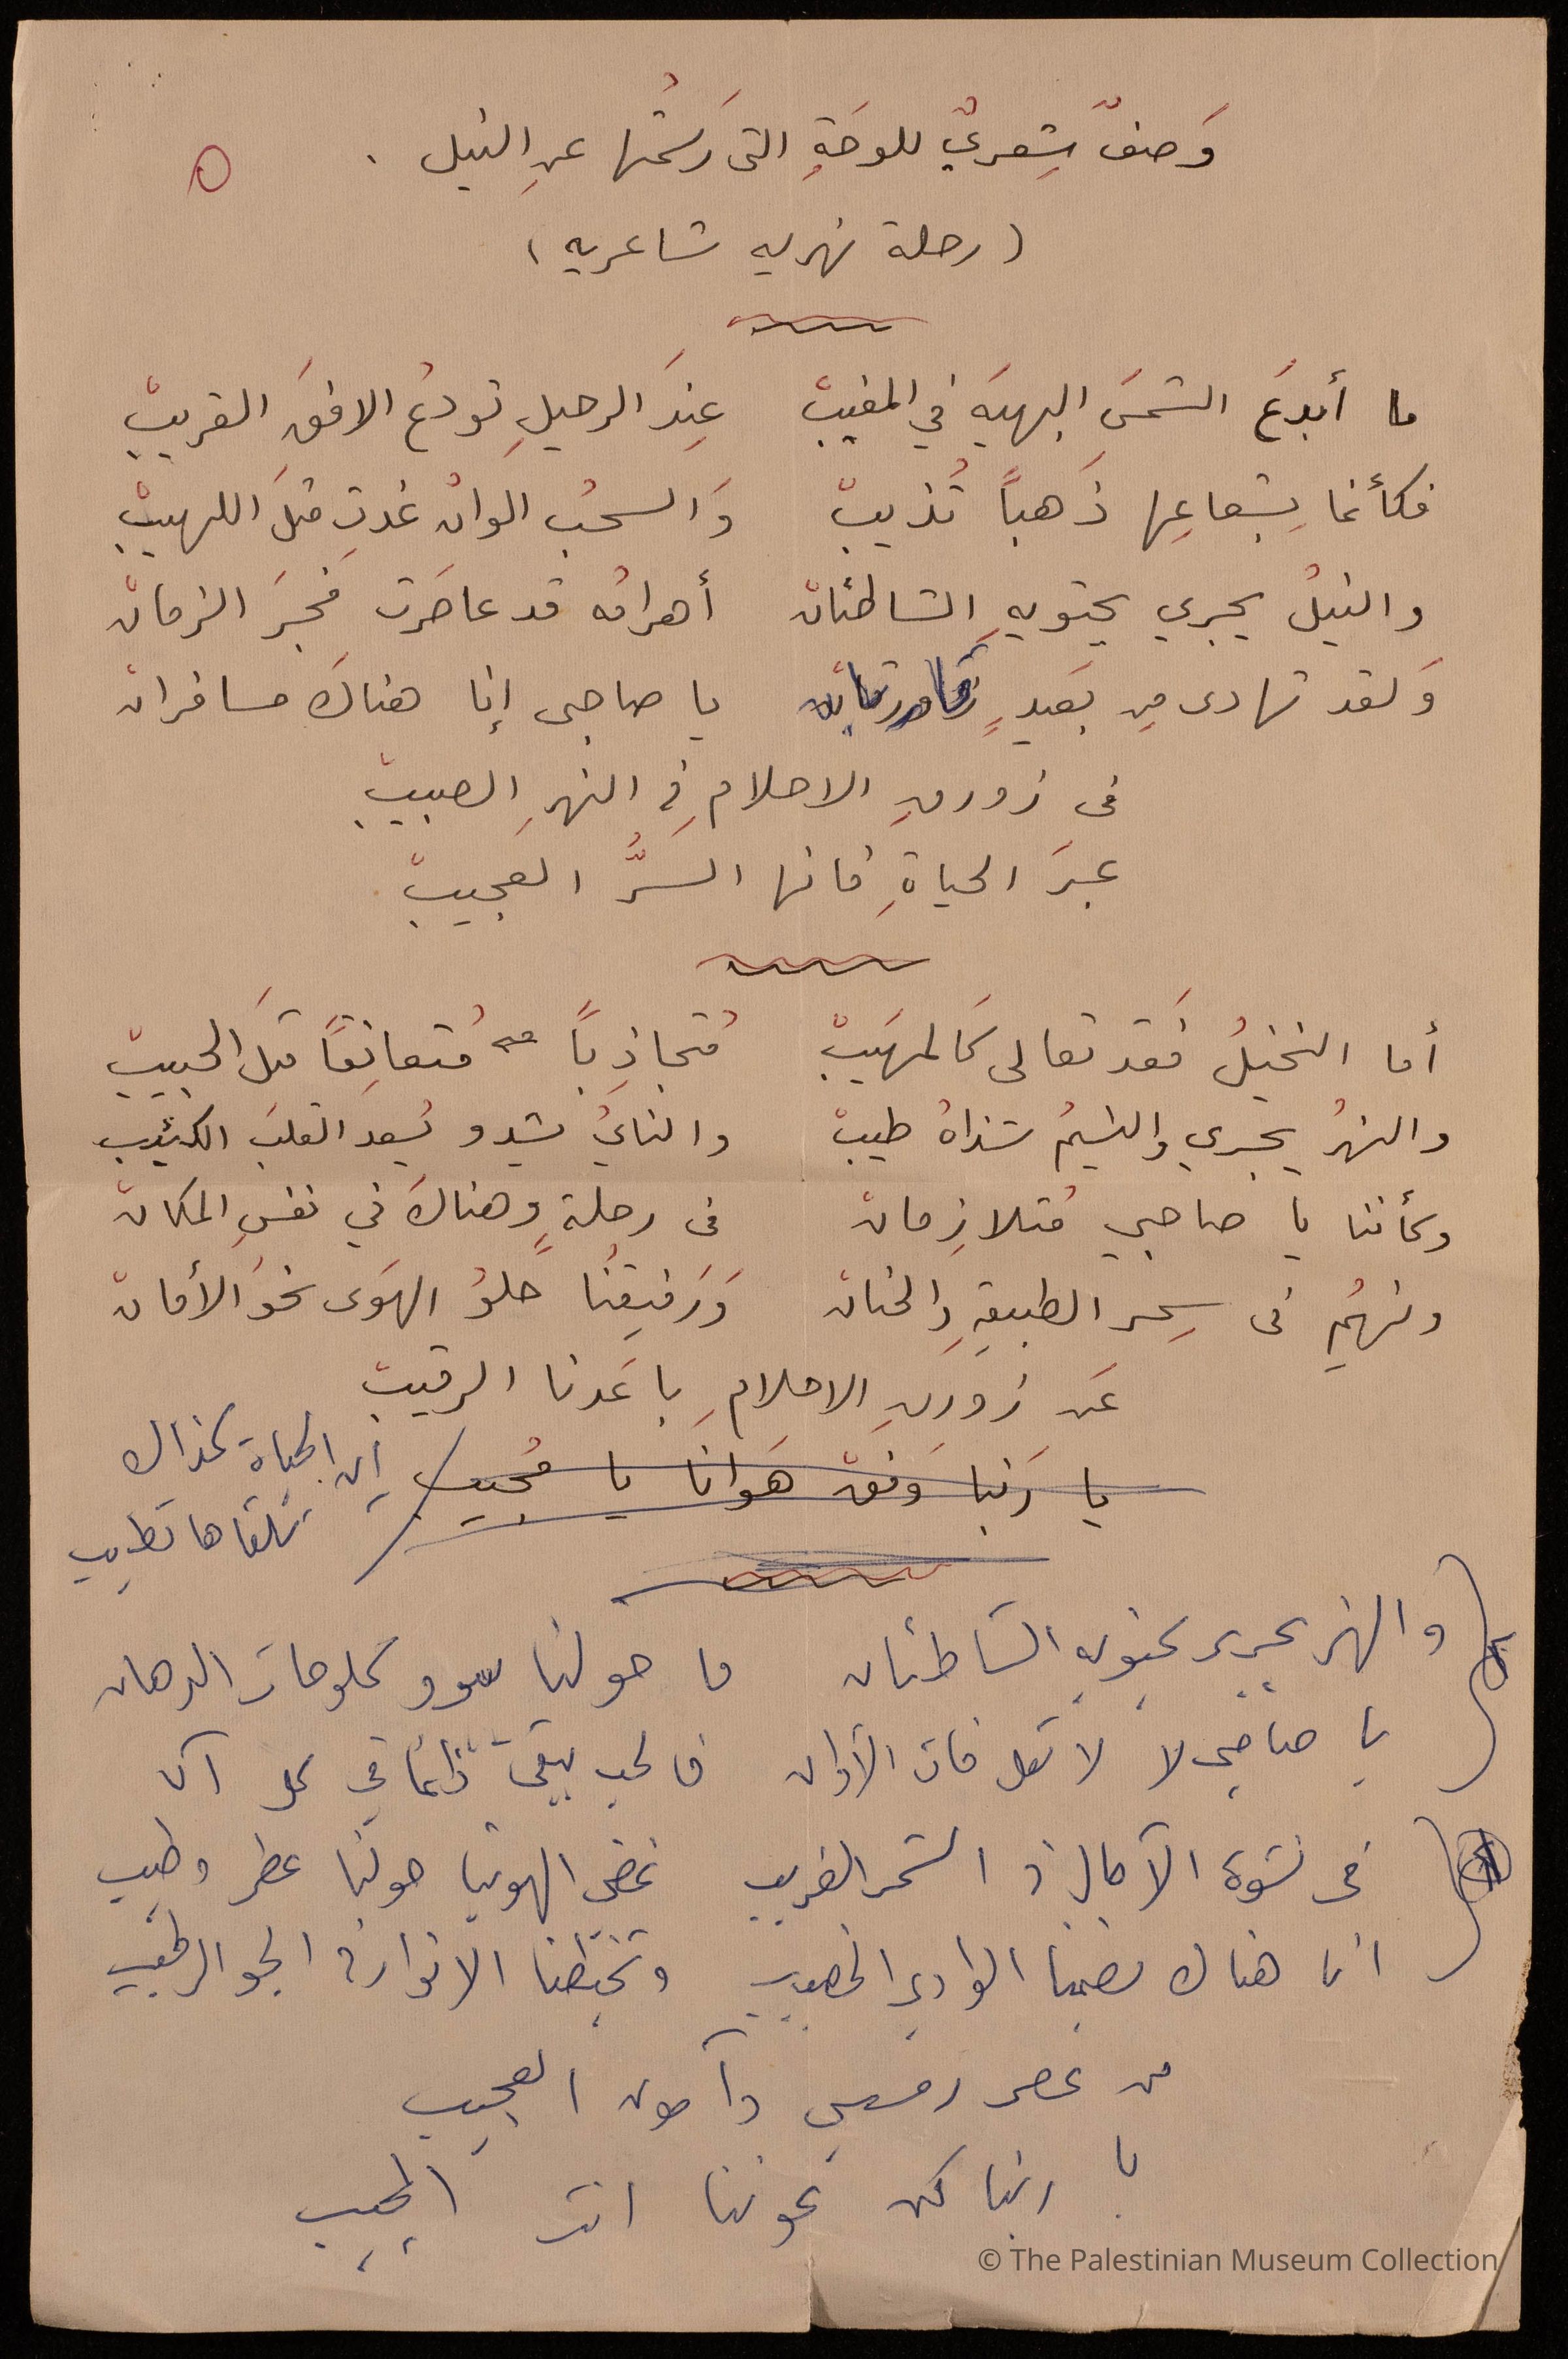 وَصفٌ شِعريٌّ للوحَةِ التى رَسَمْتُها عنِ النيل .
٥
(رحلة نهريه شاعريه)
ما أبدعَ الشمسَ البهيَه في المغيبْ عِندَ الرحيلِ تودعُ الافقَ القريبْ
فكأنما بِشعاعِها ذَهباً تُذيبْ وَالسحُب الوانٌ غدتِ مثلَ اللهيبْ
والنيلُ يجري يحتويهِ الشاطئانْ أهرامُه قد عاصَرت فجرَ الزمانْ
وَلقد تهادى مِن بَعيدٍ يا صاحبى إنا هناكَ مسافرانْ
فى زورقِ الاحلامِ في النهرِ الصبيبْ
عبرَ الحياةِ فانها السّرُّ العجيبْ
أما النخيلُ فَقد تعالى كَالمهَيبْ مُتجاذِباً مُتعانِقاً مثلَ الحبيبْ
والنهرُ يجري والنسيمُ شذاهُ طيبْ والنايُ يشدو يُسعد القلبَ الكئيب
وكأننا يا صاحبي مُتلازِمانْ فى رحلةٍ وهناكَ في نفسِ المكانْ
ونهيمُ فى سِحرِ الطبيعةِ والحنانْ وَرَفيقنُا حُلوُ الهوَى نحوَ الأمانْ
عَن زَورَقِ الاحلامِ باعَدنا الرقيبْ
يا رَبنا وَفقْ هَوانا يا مُجيب إن الحياة كذاك
تلقاها تطيب
والنهر يجري يحتويه الشاطئان ما حولنا سوى كلوحات الدهان
يا صاحبى لا لا تقل فات الأوان فالحب يبقى دائماً في كل آن
فى نشوة الآمال ذ السحر الغريب نمضى الهوينا حولنا عطر وطيب
انا هناك يضمنا الوادي الخصيب وتحيطنا الانوار في الجو الرطيب
من عصر رمسيس وآمون العجيب
يا ربنا كن عوننا انت المجيب
© The Palestinian Museum Collection